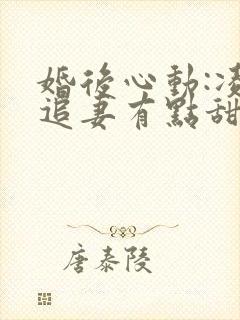 婚後心動:凌
追妻有點甜
唐泰陵